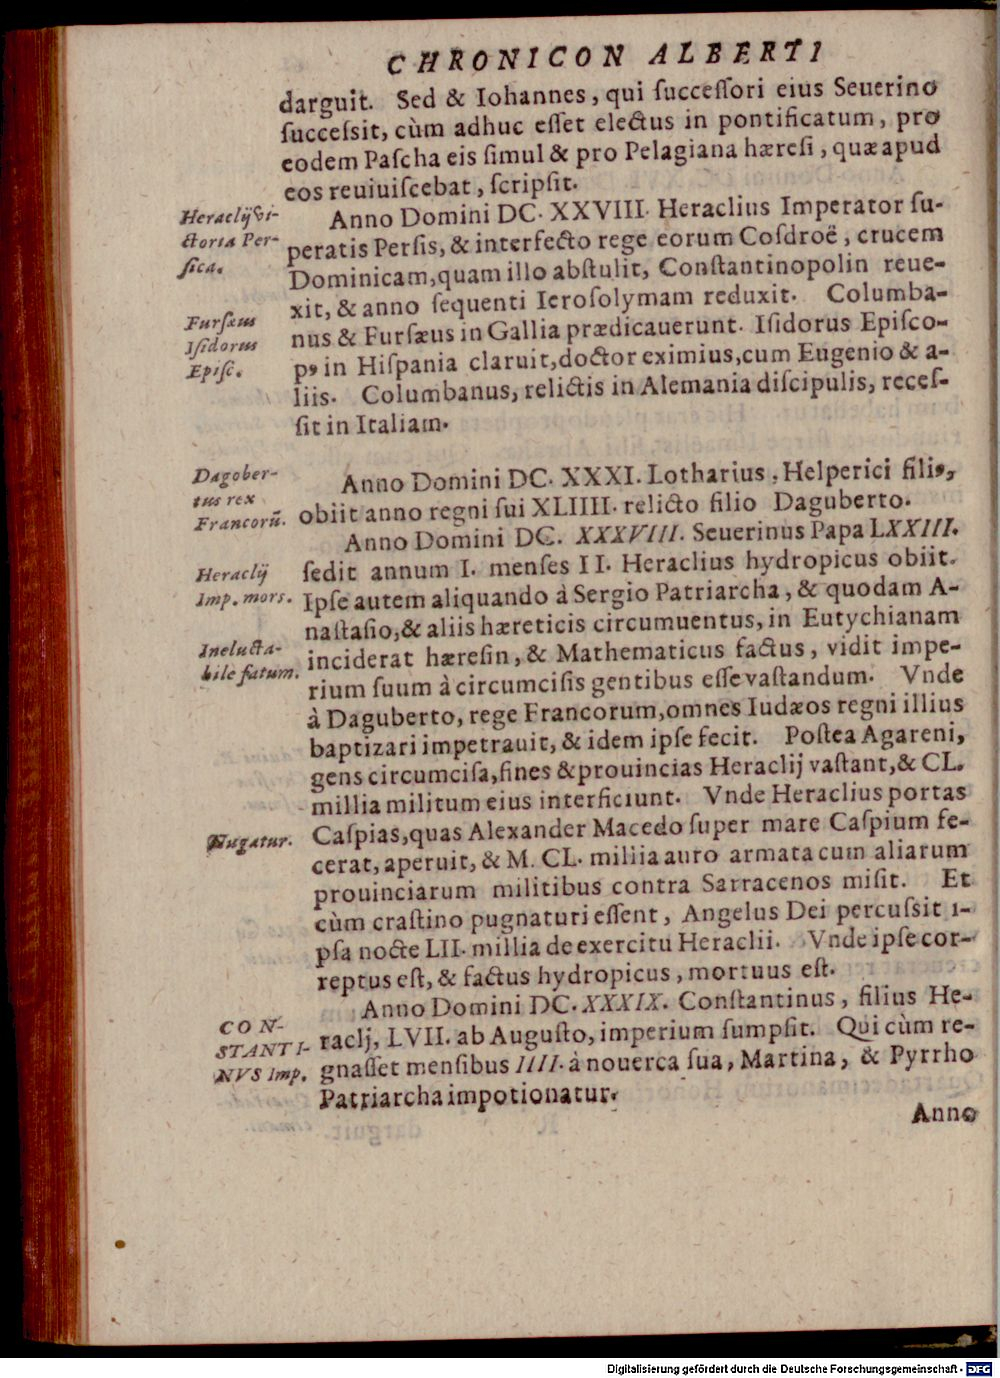 CHRONICON ALBERTI
darguit. Sed & Iohannes, qui ſucceſſori eius Seuerino
ſucceſsit, cùm adhuc eſſet electus in pontificatum, pro
eodem Paſcha eis ſimul & pro Pelagiana hæreſi, quæ apud
eos reuiuiſcebat, ſcripſit.
Heraclij vi-
ctoria Per-
ſica.
Anno Domini DC. XXVIII. Heraclius Imperator ſu-
peratis Perſis, & interfecto rege eorum Coſdroë, crucem
Dominicam, quam illo abſtulit, Conſtantinopolin reue-
xit, & anno ſequenti Ieroſolymam reduxit. Columba-
Furſæus
Iſidorus
Epiſc.
nus & Furſæus in Gallia prædicauerunt. Iſidorus Epiſco-
pꝰ in Hiſpania claruit, doctor eximius, cum Eugenio & a-
liis. Columbanus, relictis in Alemania diſcipulis, receſ-
ſit in Italiam.
Dagober-
tus rex
Francorū.
Anno Domini DC. XXXI. Lotharius, Helperici filiꝰ,
obiit anno regni ſui XLIIII. relicto filio Daguberto.
Anno Domini DC. XXXVIII. Seuerinus Papa LXXIII.
Heraclij
Imp. mors.
ſedit annum I. menſes II. Heraclius hydropicus obiit.
Ipſe autem aliquando à Sergio Patriarcha, & quodam A-
naſtaſio, & aliis hæreticis circumuentus, in Eutychianam
Inelucta-
bile fatum.
inciderat hæreſin, & Mathematicus factus, vidit impe-
rium ſuum à circumciſis gentibus eſſe vaſtandum. Vnde
à Daguberto, rege Francorum, omnes Iudæos regni illius
baptizari impetrauit, & idem ipſe fecit. Poſtea Agareni,
gens circumciſa, fines & prouincias Heraclij vaſtant, & CL.
millia militum eius interficiunt. Vnde Heraclius portas
Nugatur.
Caſpias, quas Alexander Macedo ſuper mare Caſpium fe-
cerat, aperuit, & M. CL. millia auro armata cum aliarum
prouinciarum militibus contra Sarracenos miſit. Et
cùm craſtino pugnaturi eſſent, Angelus Dei percuſsit i-
pſa nocte LII. millia de exercitu Heraclii. Vnde ipſe cor-
reptus eſt, & factus hydropicus, mortuus eſt.
CON-
STANTI-
NVS Imp.
Anno Domini DC. XXXIX. Conſtantinus, filius He-
raclj, LVII. ab Auguſto, imperium ſumpſit. Qui cùm re-
gnaſſet menſibus IIII. à nouerca ſua, Martina, & Pyrrho
Patriarcha impotionatur.
Anno
Digitalisierung gefördert durch die Deutsche Forschungsgemeinschaft - DFG